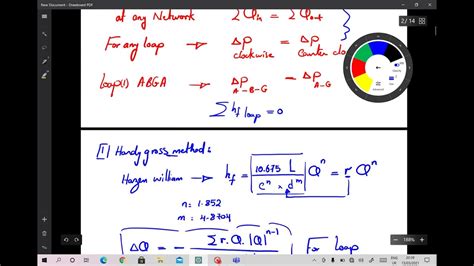 New Document - Drawboard PDF
at any Network ΣQin = ΣQout
2 / 14
For any loop → ΔP clockwise = ΔP Counter clo
Loop(1) ABGA → ΔP A-B-G = ΔP A-G
Σ hf loop = 0
[1] Hardy gross method:
Hazen william → hf = 10.675 L / (C^n × d^m) Q^n = r Q^n
n: 1.852
m: 4.8704
ΔQ = - Σ r.Q.|Q|^n-1 For loop
188%
ENG
UK
20:18
13/03/2021